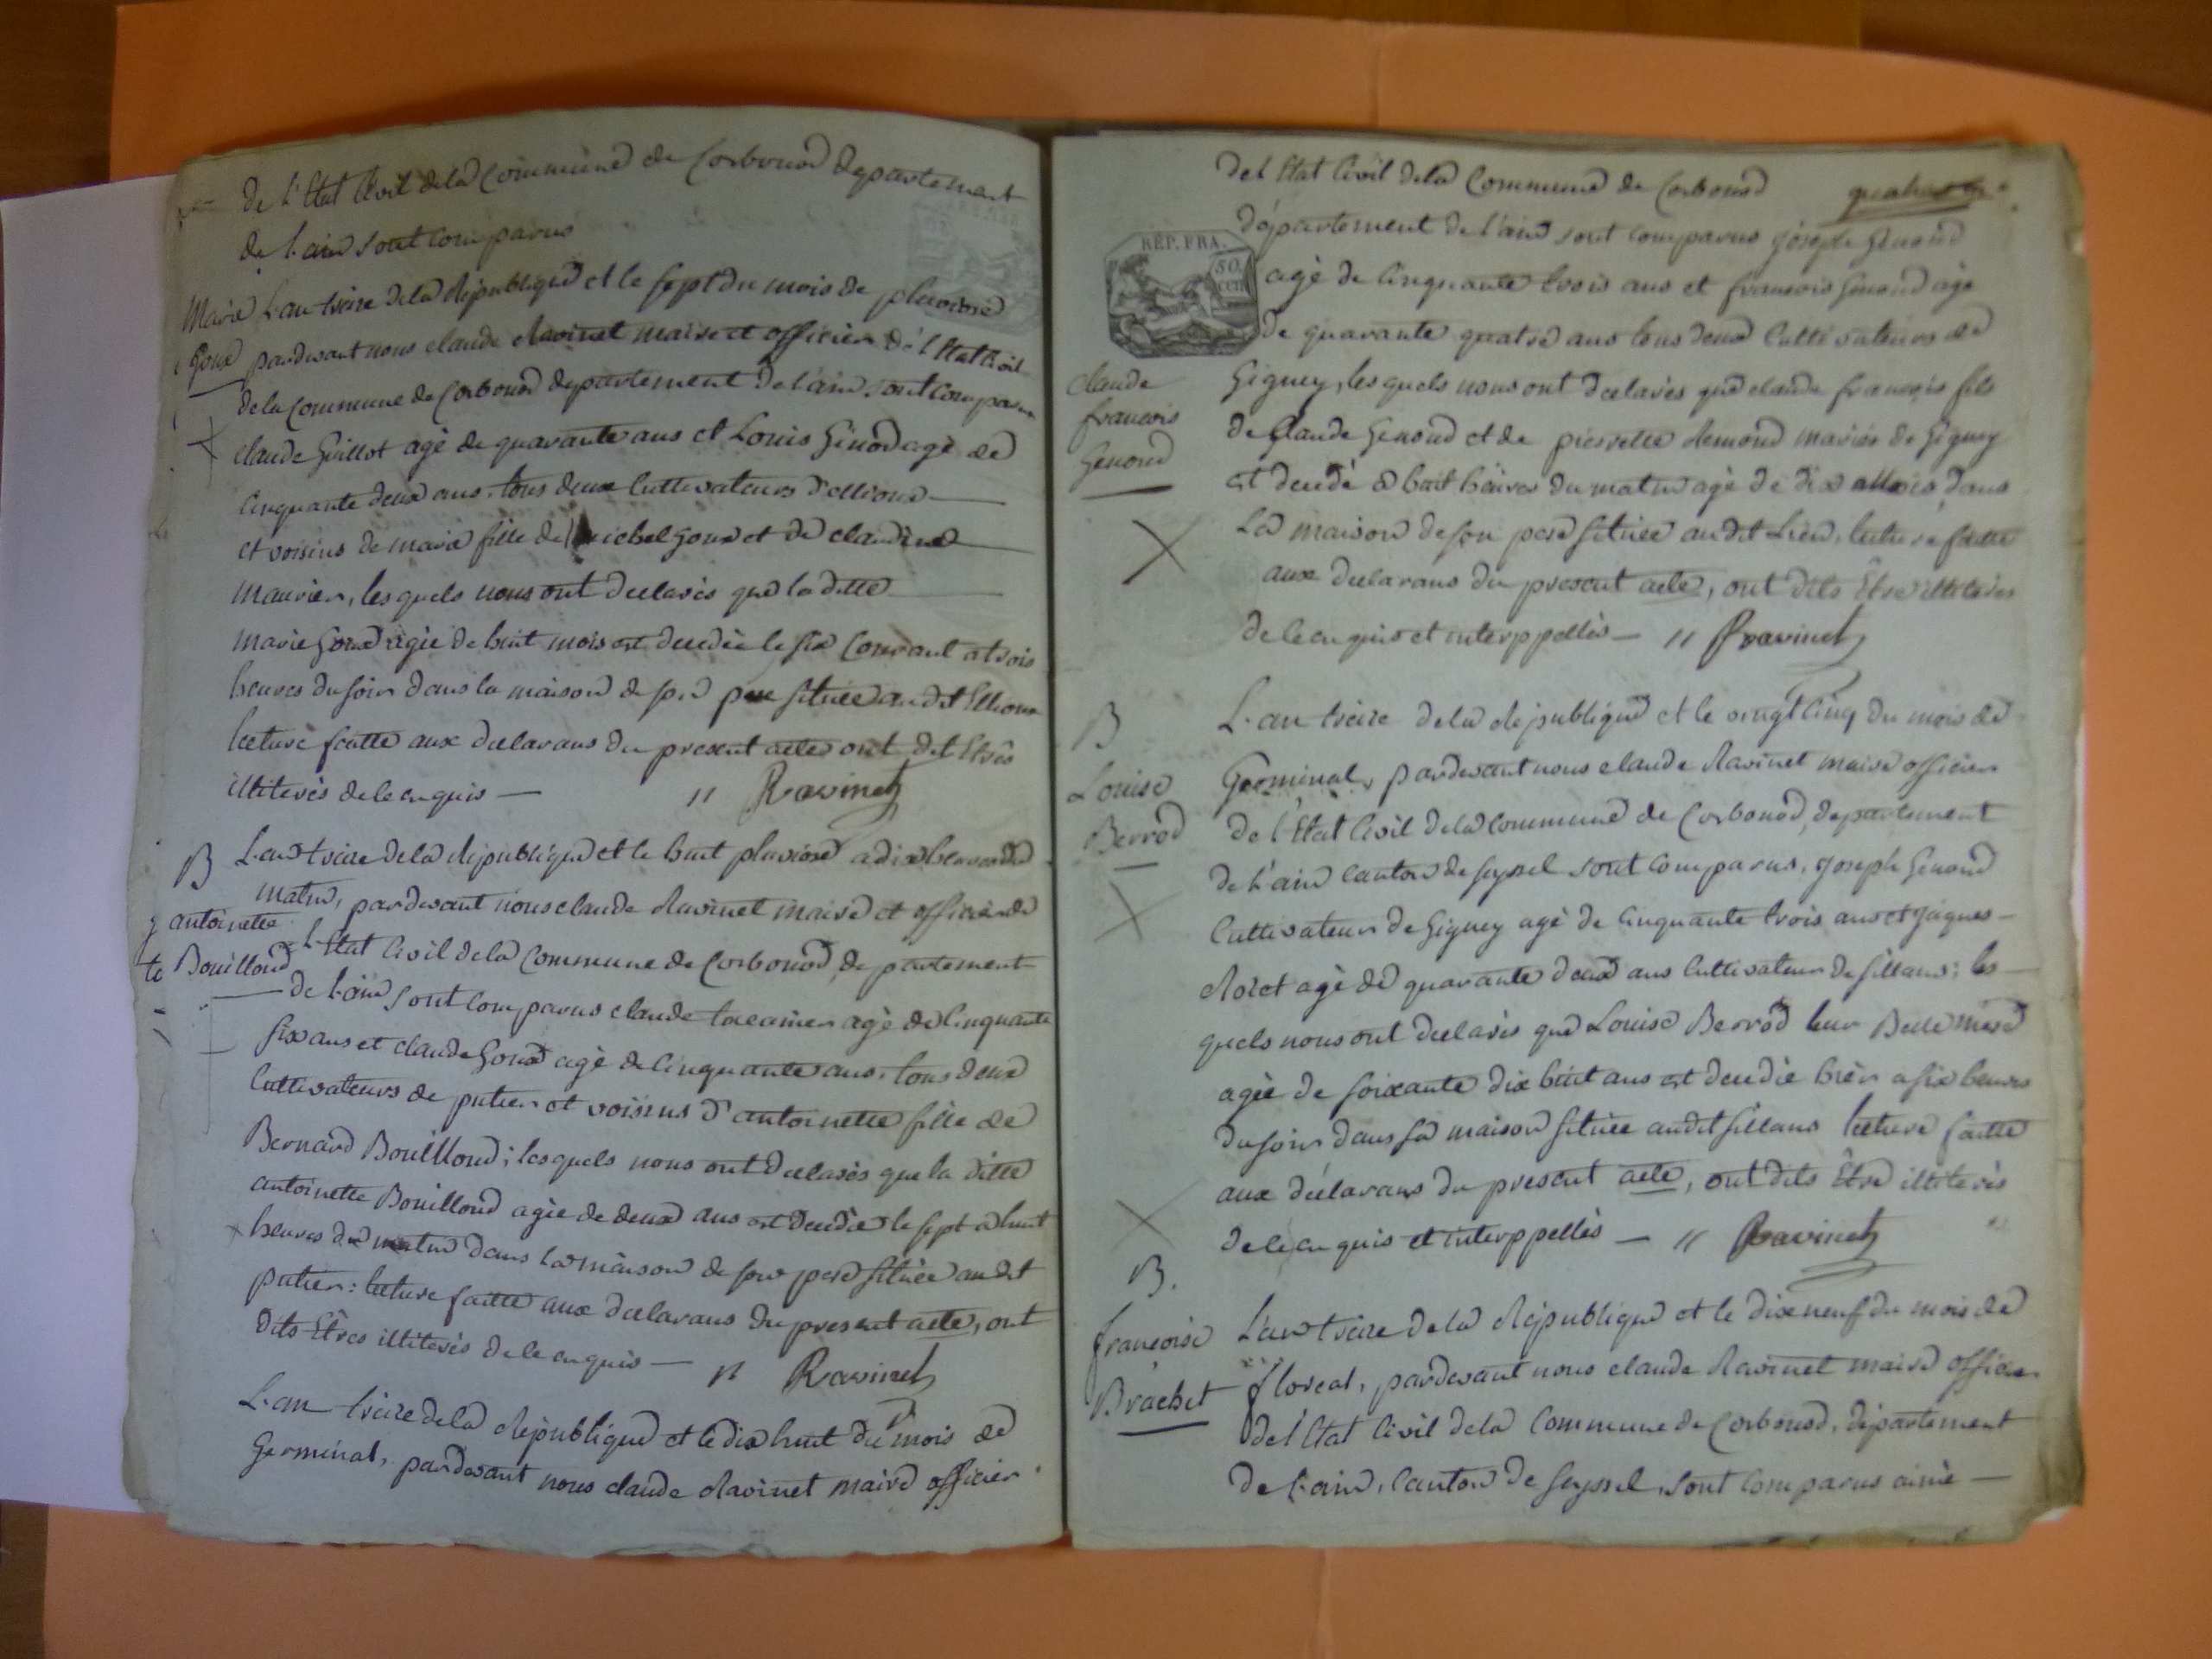 de l'Etat Civil dela Commune de Corbonod departement
de l'ain sont comparus
Marie
goux
L'an treize dela Republique et le sept du mois de pluviose
pardevant nous claude Ravinet maire et officier de l'Etat Civil
de la Commune de Corbonod departement de l'ain sont comparus
claude Guillot agé de quarante ans et Louis Genod agé de
cinquante deux ans, tous deux Cultivateurs
et voisins de marie fille de michel goux et de claudine
maurier, les quels nous ont declarés que la ditte
marie goux agée de huit mois est decedée le six Courant a trois
heures du soir dans la maison de son pere située au dit
lecture faitte aux declarans du present acte ont dit Etrès
illiterés de ce enquis — " Ravinet
B
antoinette
Bouilloud
L'an treize dela Republique et le huit pluviose a dix heures du
matin, pardevant nous claude Ravinet maire et officier de
l'Etat Civil dela Commune de Corbonod, departement
de l'ain sont comparus claude agé de Cinquante
six ans et claude goux agé de Cinquante ans, tous deux
Cultivateurs de putier et voisins d'antoinette fille de
Bernard Bouilloud; lesquels nous ont declarés que la ditte
antoinette Bouilloud agée de deux ans est decedée le sept a huit
heures du matin dans la maison de son pere située au dit
putier: lecture faitte aux declarans du present acte, ont
dits Etres illiterés de ce enquis — " Ravinet
L'an treize dela Republique et le dix huit du mois de
Germinal, pardevant nous claude Ravinet maire officier
del Etat Civil dela Commune de Corbonod
RÉP. FRA.
50
CEN
departement de l'ain sont comparus joseph Genoud
agé de Cinquante trois ans et francois Genoud agé
de quarante quatre ans tous deux Cultivateurs de
claude
francois
Genoud
Gigney, les quels nous ont declarés que claude francois fils
de claude Genoud et de pierrette Remond mariés de Gigney
est decedé a huit heures du matin agé de dix mois dans
La maison de son pere située au dit Lieu, lecture faitte
aux declarans du present acte, ont dits Etre illiterés
de ce enquis et interppellés — " Ravinet
B
Louise
Berrod
L'an treize dela Republique et le vingt cinq du mois de
Germinal, pardevant nous claude Ravinet maire officier
de l'Etat Civil dela commune de Corbonod, departement
de l'ain canton de seyssel sont comparus, joseph Genoud
Cultivateur de Gigney agé de Cinquante trois ans et jaques
agé de quarante deux ans Cultivateur de sillans; les
quels nous ont declarés que Louise Berrod leur Belle mere
agée de soixante dix huit ans est decedée hièr a six heures
du soir dans sa maison située audit sillans lecture faitte
aux declarans du present acte, ont dits Etre illiterés
de ce enquis et interppellés — " Ravinet
B.
francoise
Brachet
L'an treize dela Republique et le dix neuf du mois de
floreal, pardevant nous claude Ravinet maire officier
del Etat Civil dela Commune de Corbonod, departement
de l'ain, Canton de seyssel, sont comparus aimé —